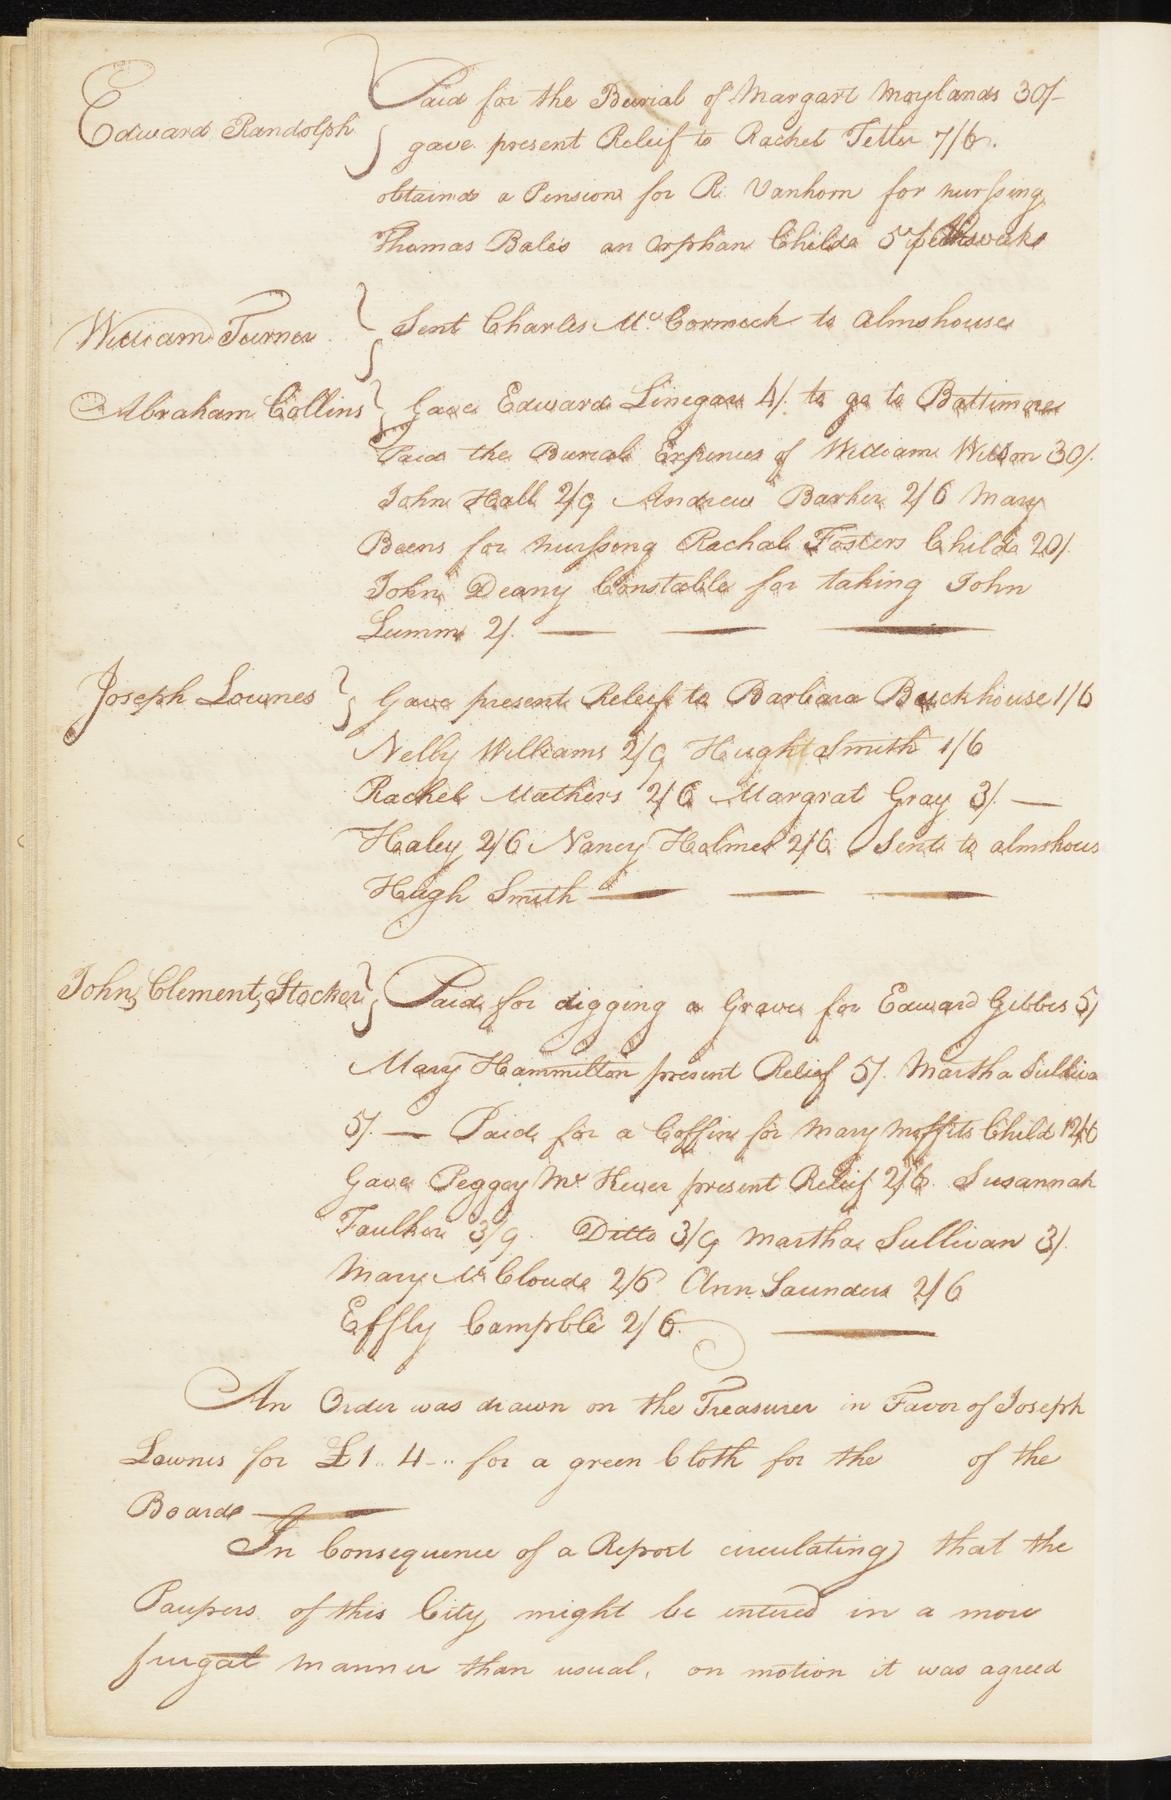 Edward Randolph } Paid for the Burial of Margart Moylands 30/-
gave present Releif to Rachel Tetter 7/6.
obtaind a Pension for R. Vanhorn for nursing
Thomas Bales an orphan Child 5/ week
William Turner } Sent Charles Mc. Cormick to almshouse
Abraham Collins } Gave Edward Linegan 4/. to go to Baltimore
Paid the Burial Expences of William Wilson 30/.
John Hall 2/9 Andrew Barker 2/6 Mary
Beens for nursing Rachal Fosters Child 20/.
John Deany Constable for taking John
Lumm 2/. — — —
Joseph Lownes } Gave present Releif to Barbara Buckhouse 1/6
Nelly Williams 2/9 Hugh Smith 1/6
Rachel Mathers 2/6 Margrat Gray 3/. —
Haley 2/6 Nancy Holmes 2/6 Sent to almshous
Hugh Smith — — —
John, Clement, Stocker } Paid for digging a Grave for Edward Gibbes 5/
Mary Hammilton present Relief 5/. Martha Sulliva
5/. — Paid for a Coffin for Mary Moffits Child 12/6
Gave Peggey Mc Kever present Relief 2/6. Susannah
Faulkn 3/9. Ditto 3/9 Martha Sullivan 3/.
Mary Mc Cloud 2/6 Ann Saunders 2/6
Effly Campble 2/6. —
An Order was drawn on the Treasurer in Favor of Joseph
Lownes for £1..4-.. for a green Cloth for the of the
Board —
In Consequence of a Report circulating, that the
Paupers of this City might be intered in a more
frugal manner than usual, on motion it was agreed